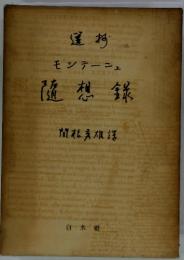 選抄
モンテーニュ
隨想録
関根秀雄譯
白水社